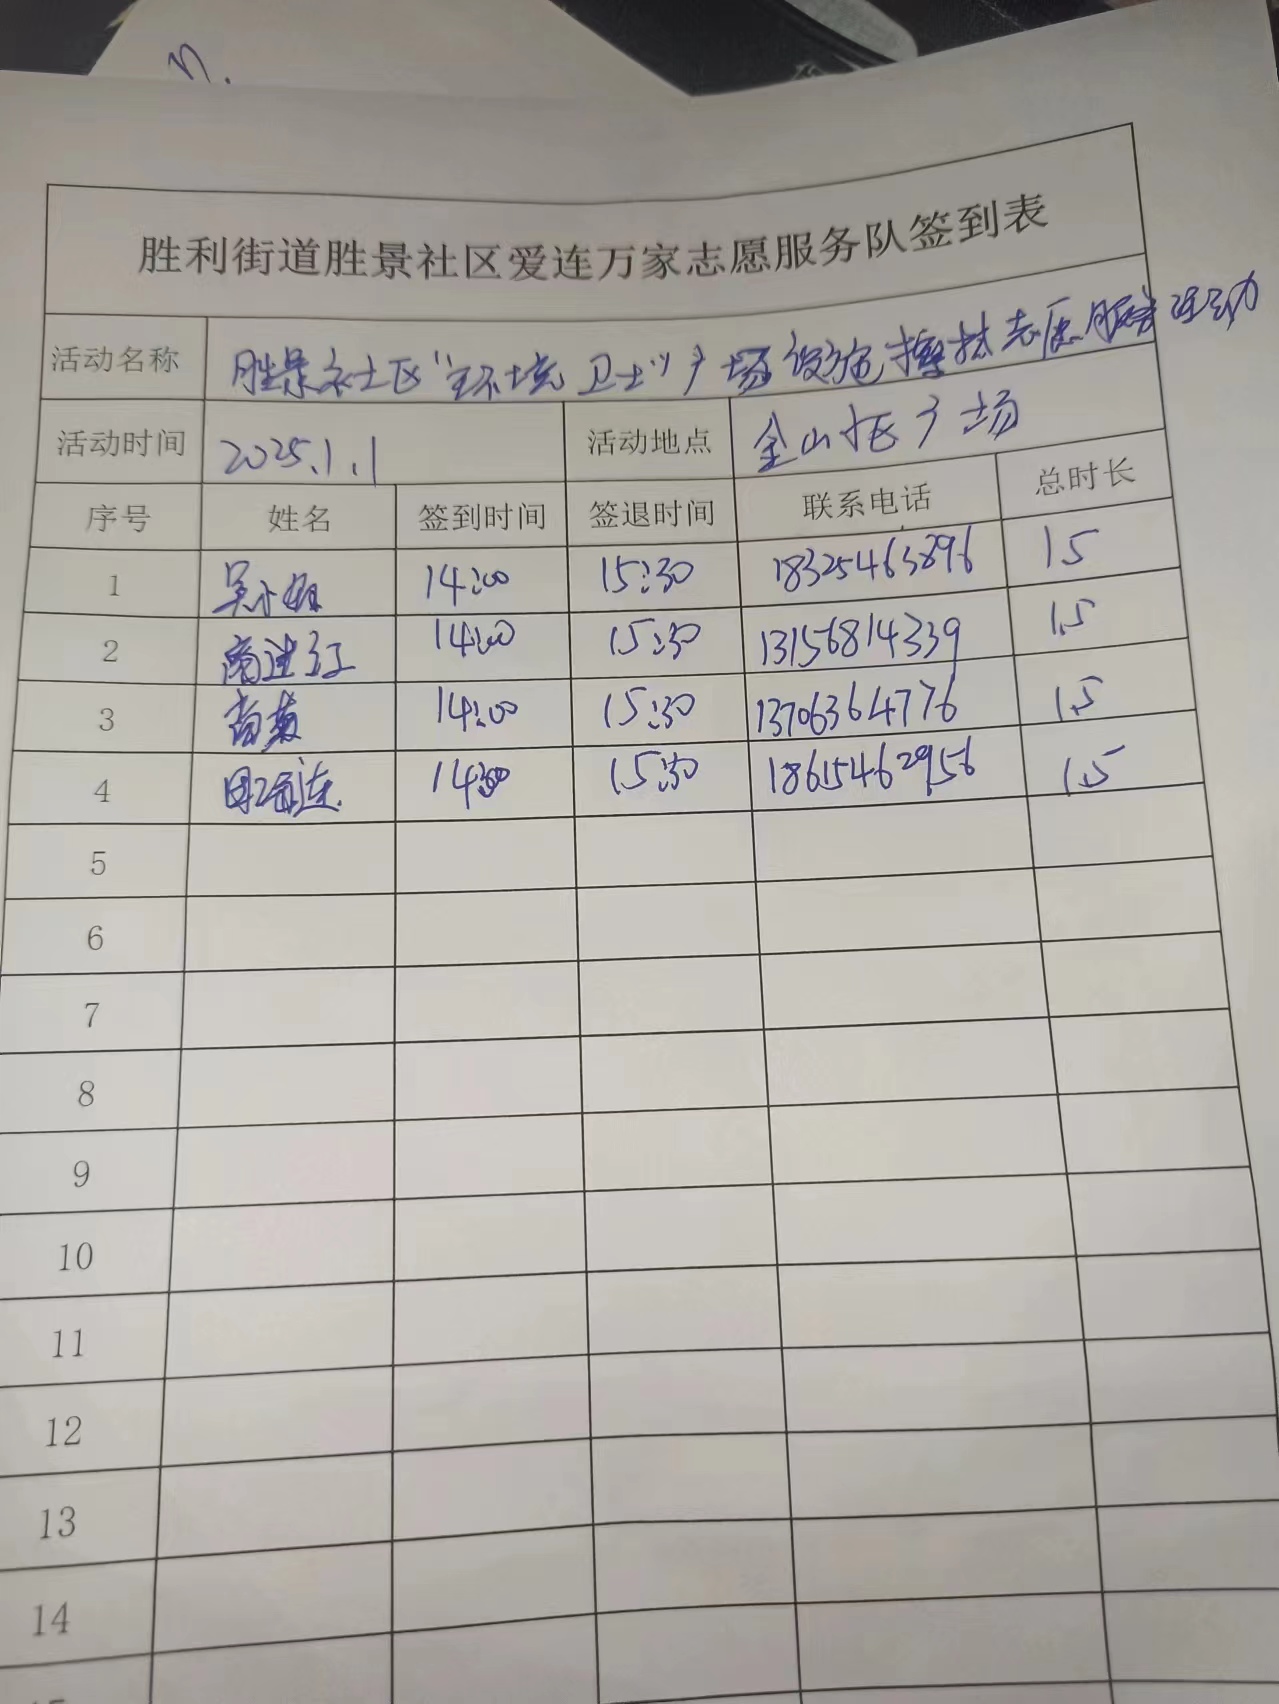 n.
胜利街道胜景社区爱连万家志愿服务队签到表
活动名称 胜景社区"环境卫士"广场设施擦拭志愿服务活动
活动时间 2025.1.1 活动地点 金山区广场
序号 姓名 签到时间 签退时间 联系电话 总时长
1 吴小娟 14:00 15:30 18325463896 1.5
2 14:00 15:30 13156814339 1.5
3 14:00 15:30 13706364776 1.5
4 14:00 15:30 18615462956 1.5
5
6
7
8
9
10
11
12
13
14
15